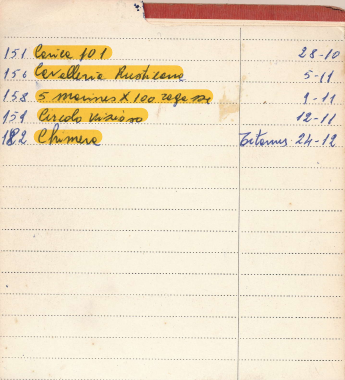 151 Carica 101 28-10
156 Cavalleria Rusticana 5-11
158 5 marines X 100 ragazze 9-11
159 Circolo vizioso 12-11
182 Chimera Titanus 24-12